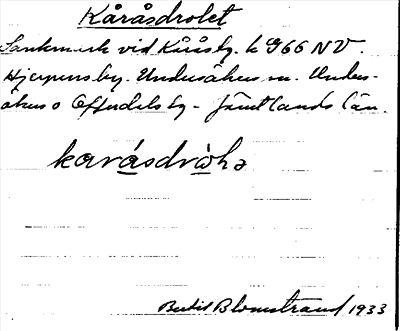 Kåråsdrolet
Sankmark vid Kåråsbg. k 966 NV.
Hjerpens by. Undersåkers sn. Unders-
åkers o Offerdals by - Jämtlands län.
karásdròhə
Bertil Blomstrand 1933